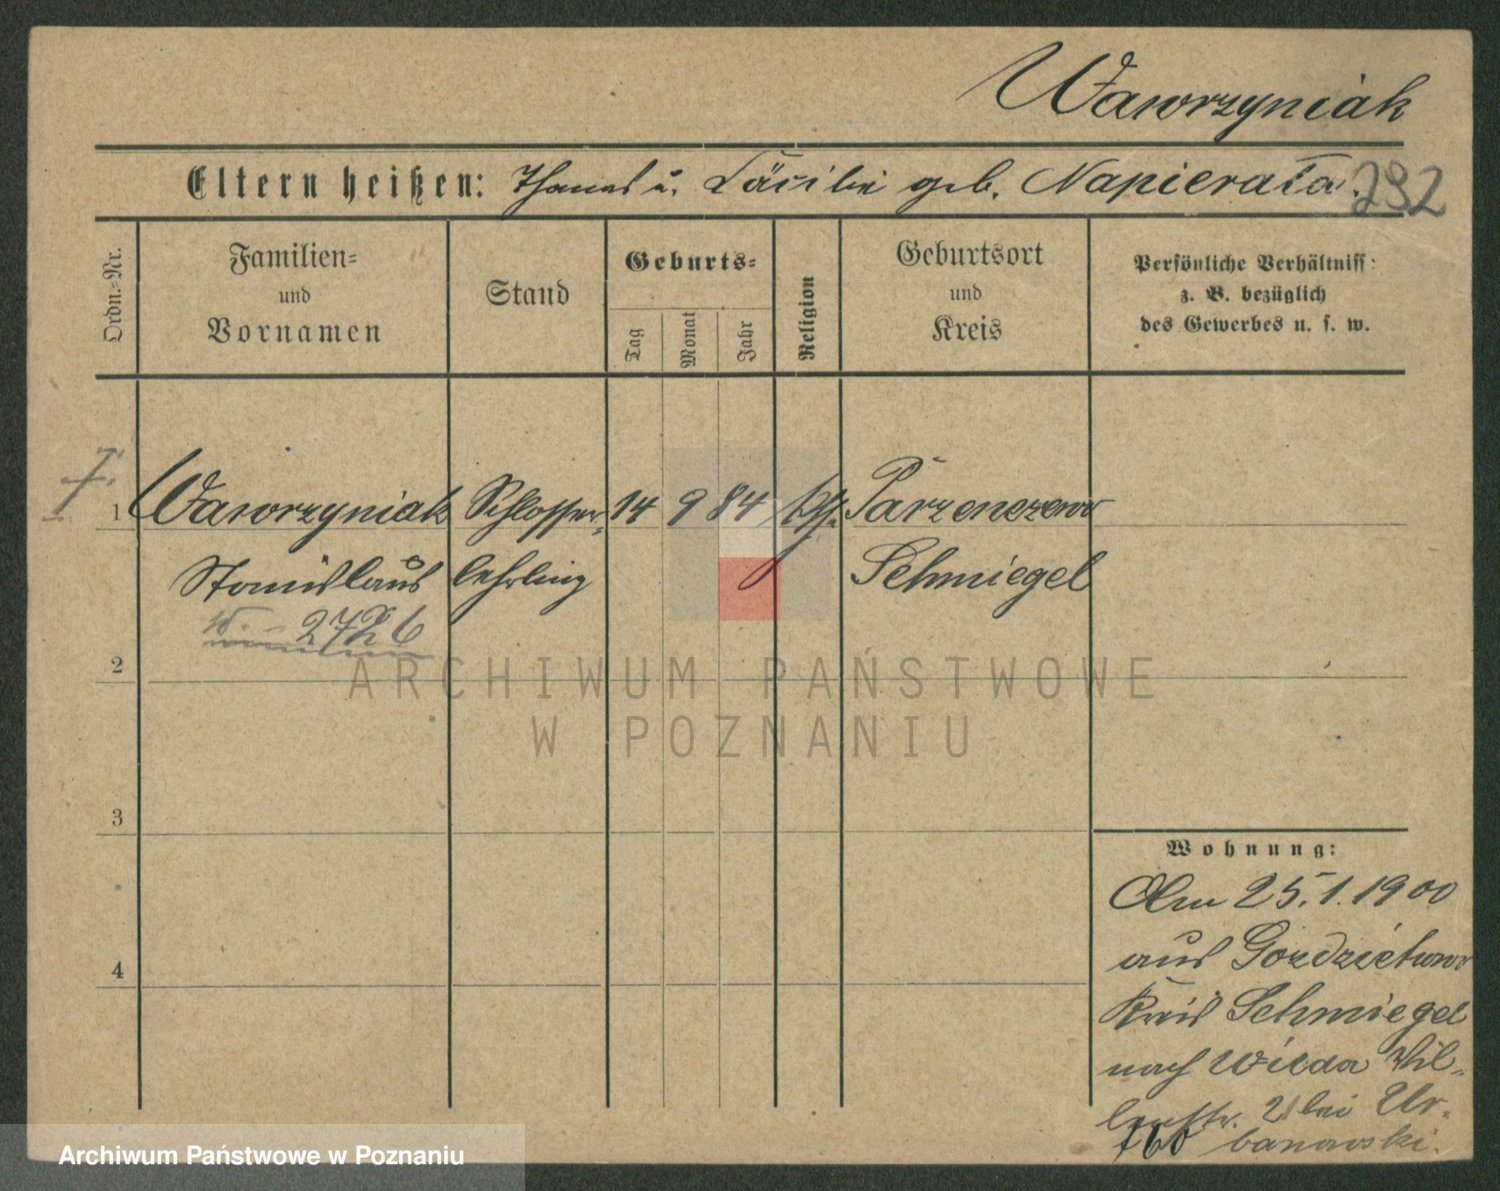 Wawrzyniak
Eltern heißen: Thomas u. Cäcilie geb. Napierała. 292
Ordn.-Nr.
Familien-
und
Vornamen
Stand
Geburts-
Tag
Monat
Jahr
Religion
Geburtsort
und
Kreis
Persönliche Verhältniss:
z. B. bezüglich
des Gewerbes u. s. w.
1 Wawrzyniak Schlosser- 14 9 84 kth. Parzenczewo
Stanislaus lehrling Schmiegel
2726
2
ARCHIWUM PAŃSTWOWE
W POZNANIU
3
Wohnung:
Am 25.1.1900
aus Gozdziehowo
4
Kreis Schmiegel
nach Wilda Vil-
21 bei Ur-
banowski.
Archiwum Państwowe w Poznaniu